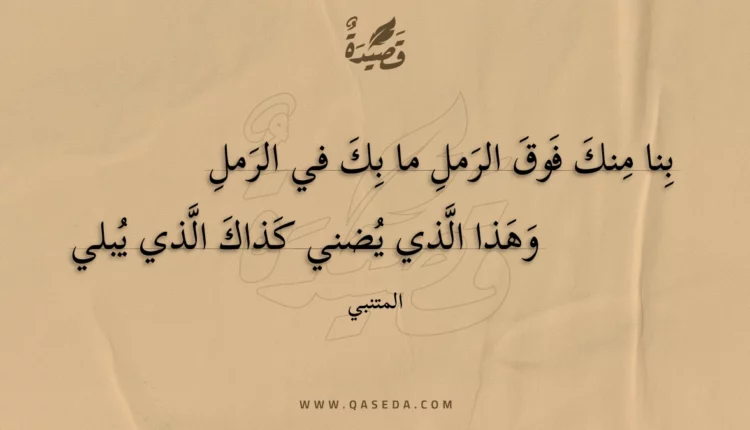 قَصِيْدَةٌ
بِنا مِنكَ فَوقَ الرَملِ ما بِكَ في الرَملِ
وَهَذا الَّذي يُضني كَذاكَ الَّذي يُبلي
المتنبي
WWW.QASEDA.COM